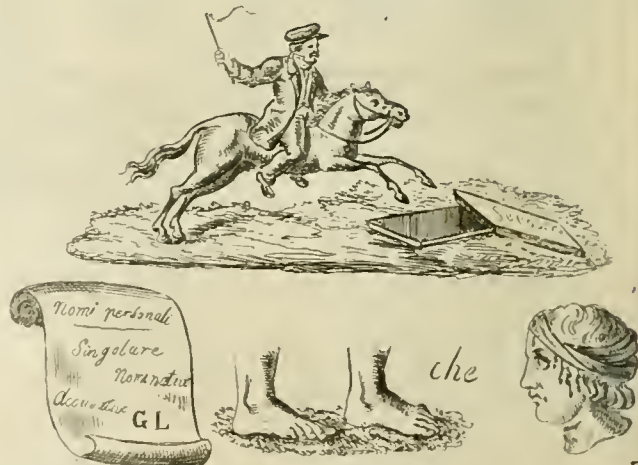 Nomi personali
Singolare
Nominativo
Accusativo
G L
che